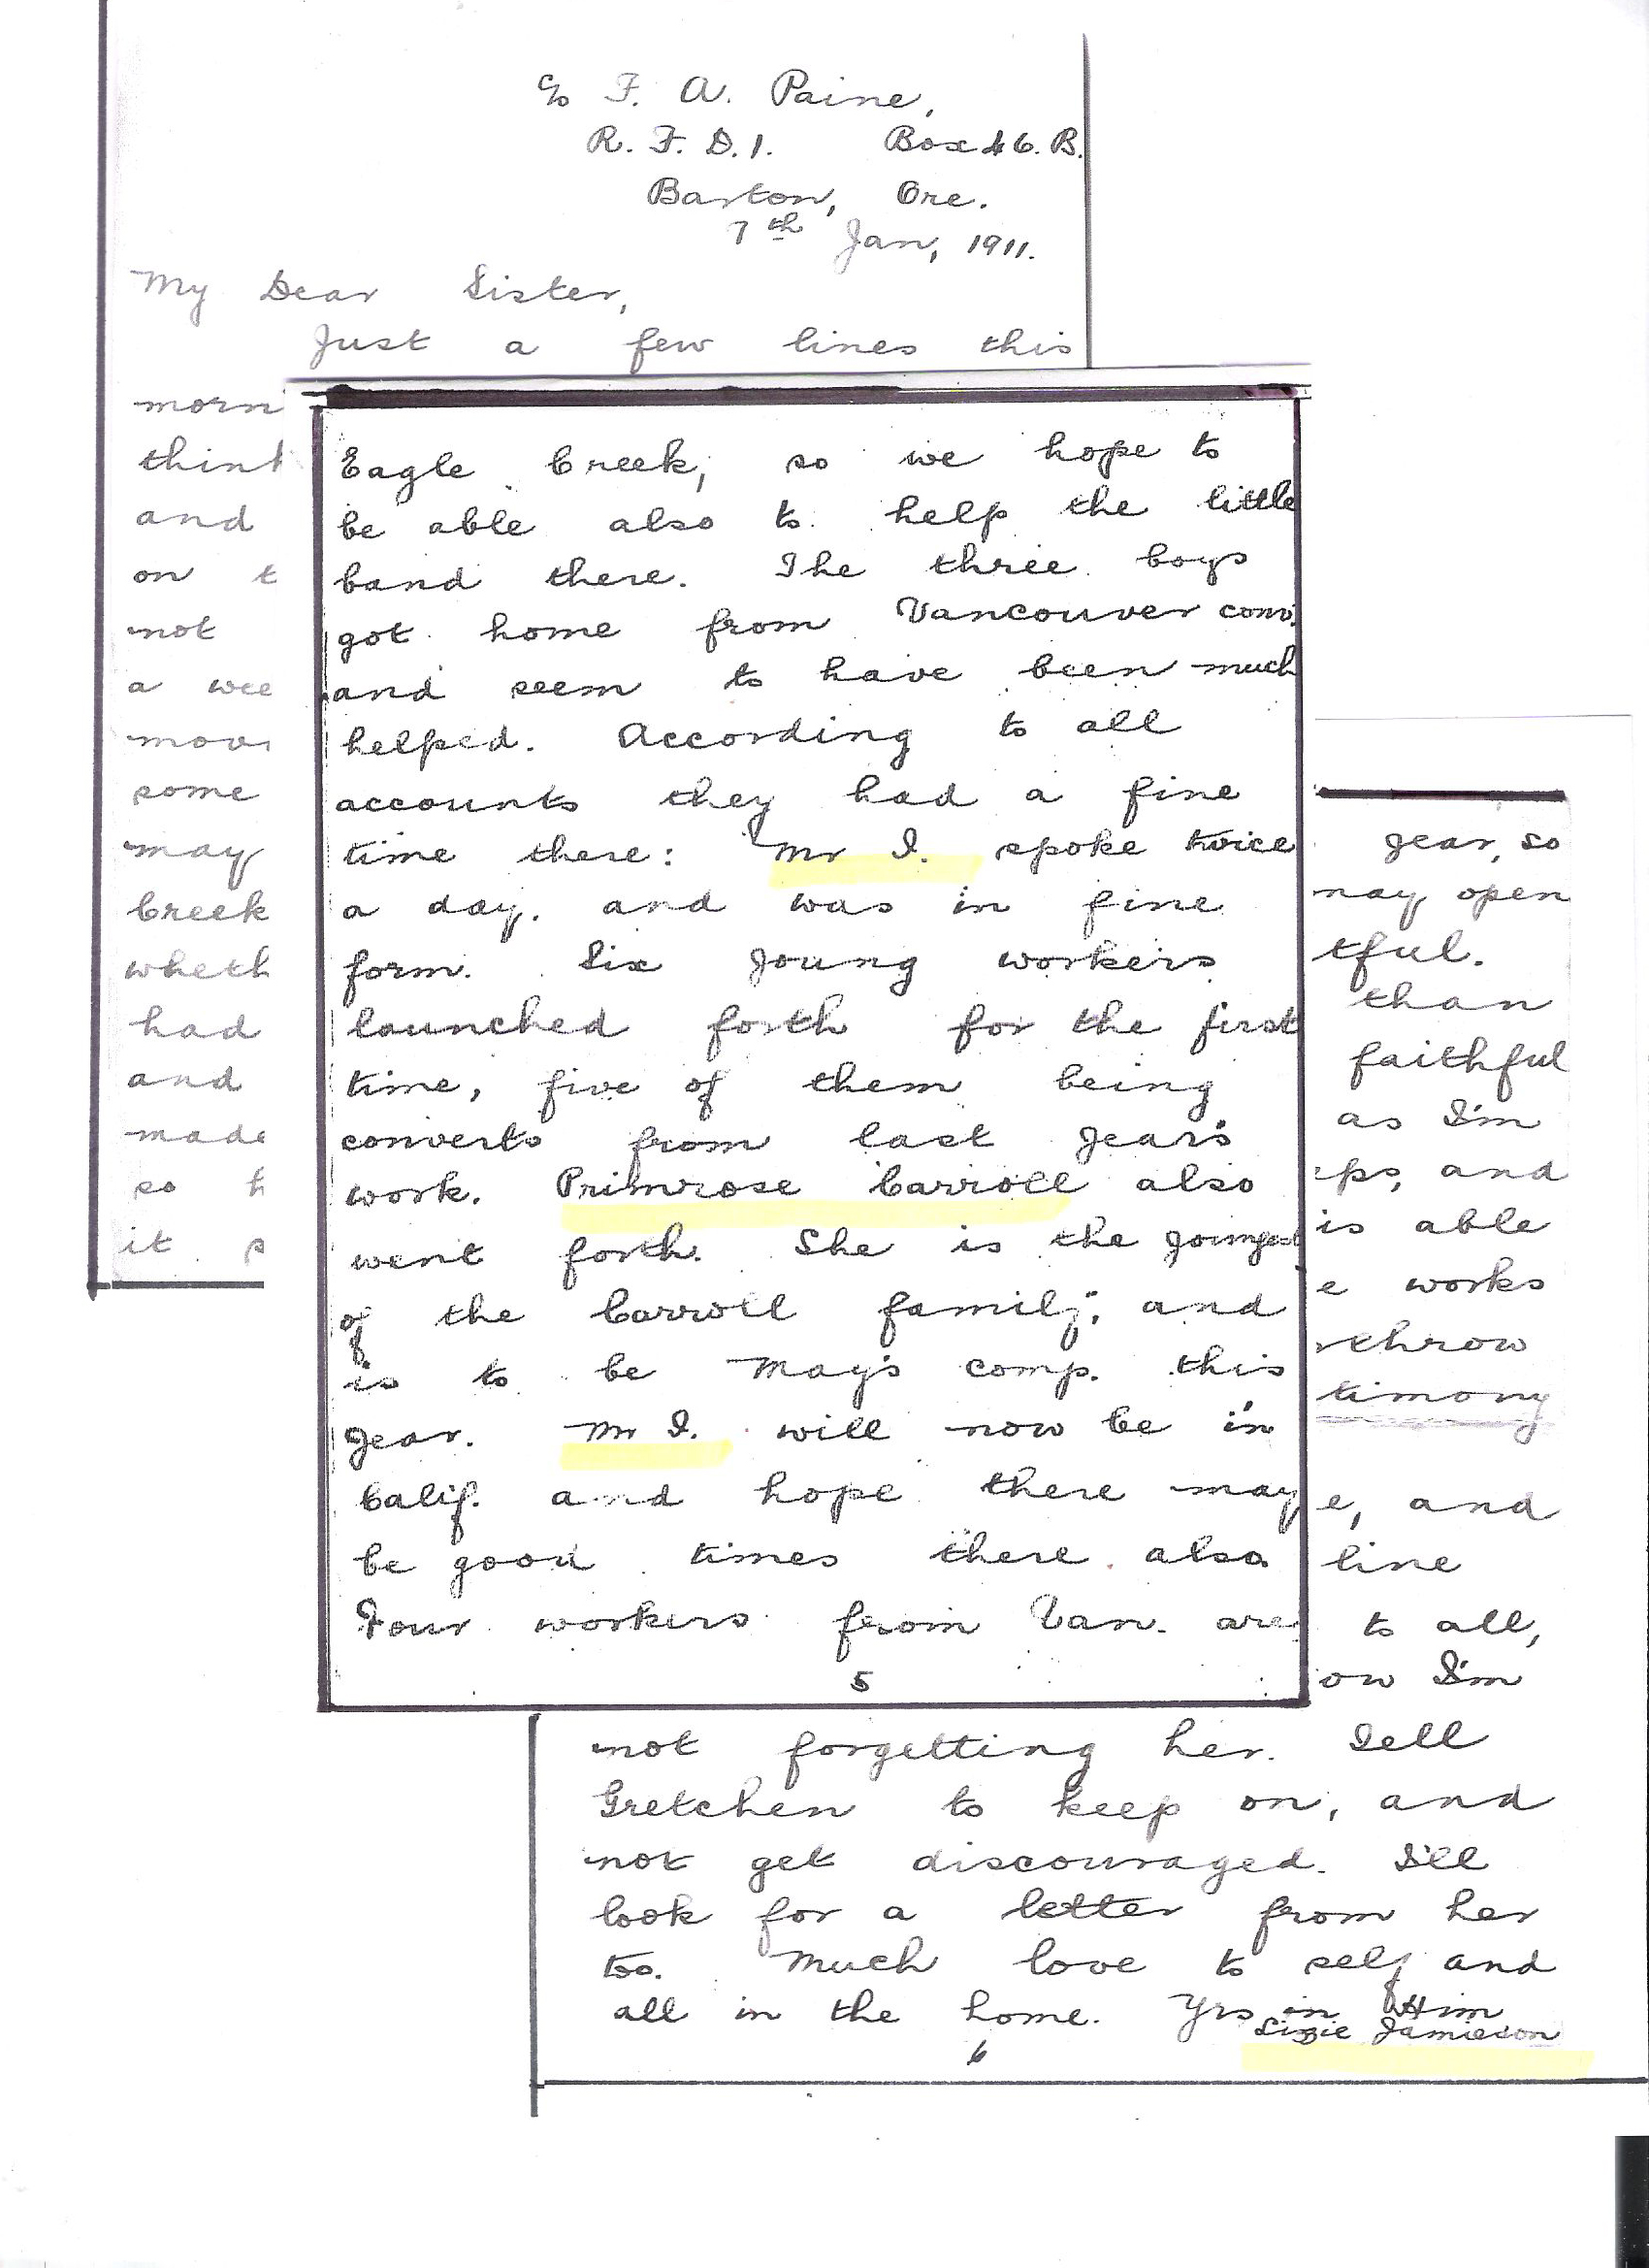 c/o F. A. Paine,
R. F. D. 1. Box 46. B.
Barton, Ore.
7th Jan, 1911.
My Dear Sister,
Just a few lines this
morn
think
and
on t
not
a wee
mov
some
may
Creek
wheth
had
and
made
so h
it
Eagle Creek, so we hope to
be able also to help the little
band there. The three boys
got home from Vancouver conv.
and seem to have been much
helped. According to all
accounts they had a fine
time there: Mr I. spoke twice
a day. and was in fine
form. Six young workers
launched forth for the first
time, five of them being
converts from last year's
work. Primrose Carroll also
went forth. She is the youngest
of the Carroll family, and
is to be May's comp. this
year. Mr I. will now be in
Calif. and hope there may
be good times there also
Four workers from Van. are
5
year, so
may open
tful.
than
faithful
as I'm
eps, and
is able
e works
rthrow
timony
e, and
line
to all,
ow I'm
not forgetting her. Tell
Gretchen to keep on, and
not get discouraged. I'll
look for a letter from her
too. Much love to self and
all in the home. Yrs in Him
Lizzie Jamieson
6